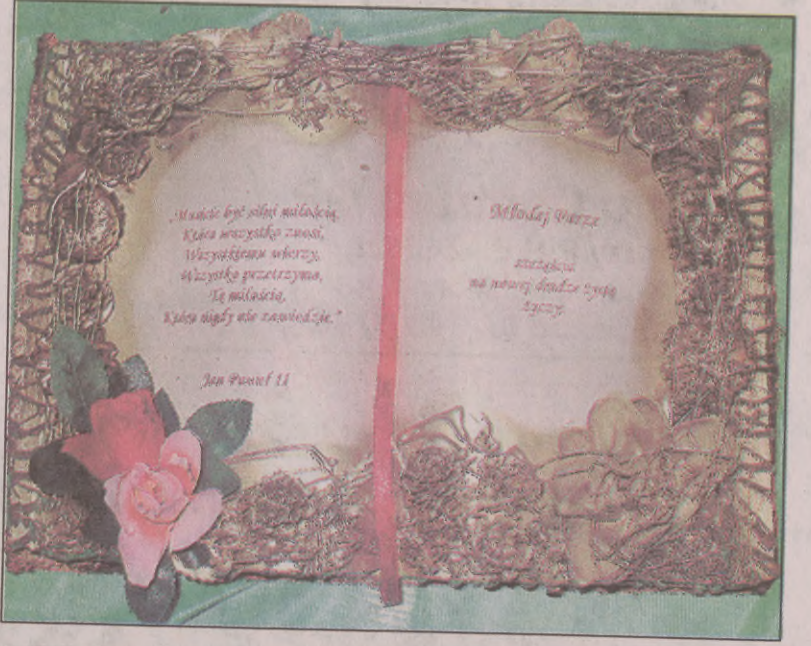 „Musicie być silni miłością,
Która wszystko znosi,
Wszystkiemu wierzy,
Wszystko przetrzyma,
Tę miłością,
Która nigdy nie zawiedzie."
Jan Paweł II
Młodej Parze
szczęścia
na nowej drodze życia
życzy: